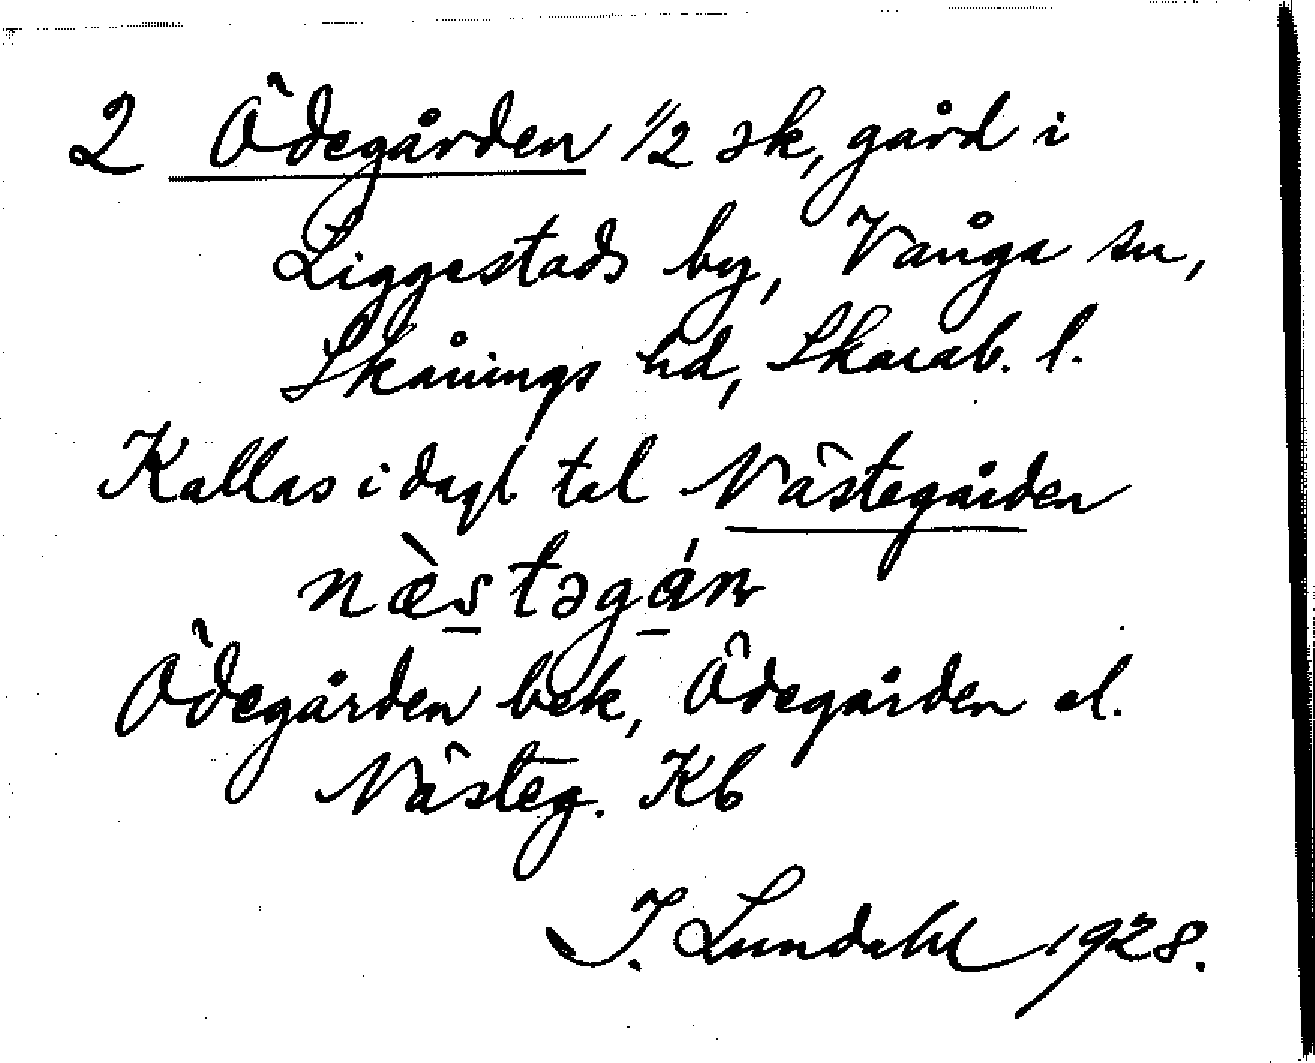 2 Ödegården 1/2 sk, gård i
Liggestads by, Vånga sn,
Skånings hd, Skarab. l.
Kallas i dagl tal Nästegården
næ̀stəgán
Ödegården bek, Ödegården el.
Nästeg. Kb
I. Lundahl 1928.